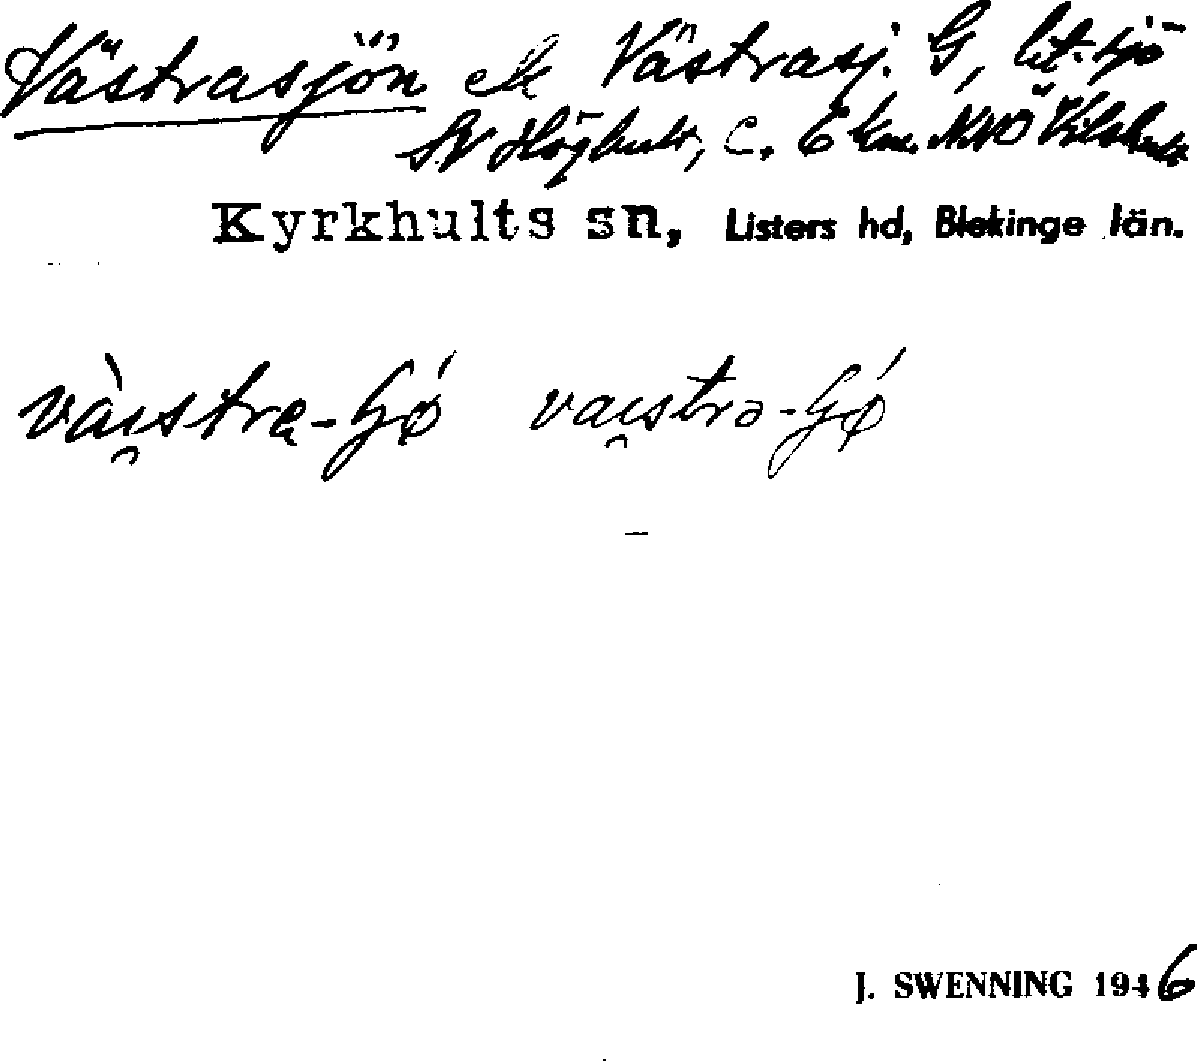 Västrasjön el Västrasj. G, lit. sjö
SV Höghult, c. 6 km. NNÖ Vilshult
Kyrkhults sn, Listers hd, Blekinge län.
J. SWENNING 1946